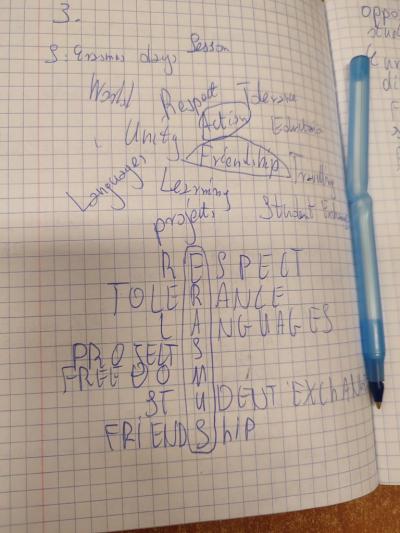 3.
S: Erasmus days Session
World Respect Tolerance
Unity Action Education
Languages Friendship Travelling
Learning
projects Student Exchange
RESPECT
TOLERANCE
LANGUAGES
PROJECTS
FREEDOM
STUDENT EXCHANGE
FRIENDSHIP